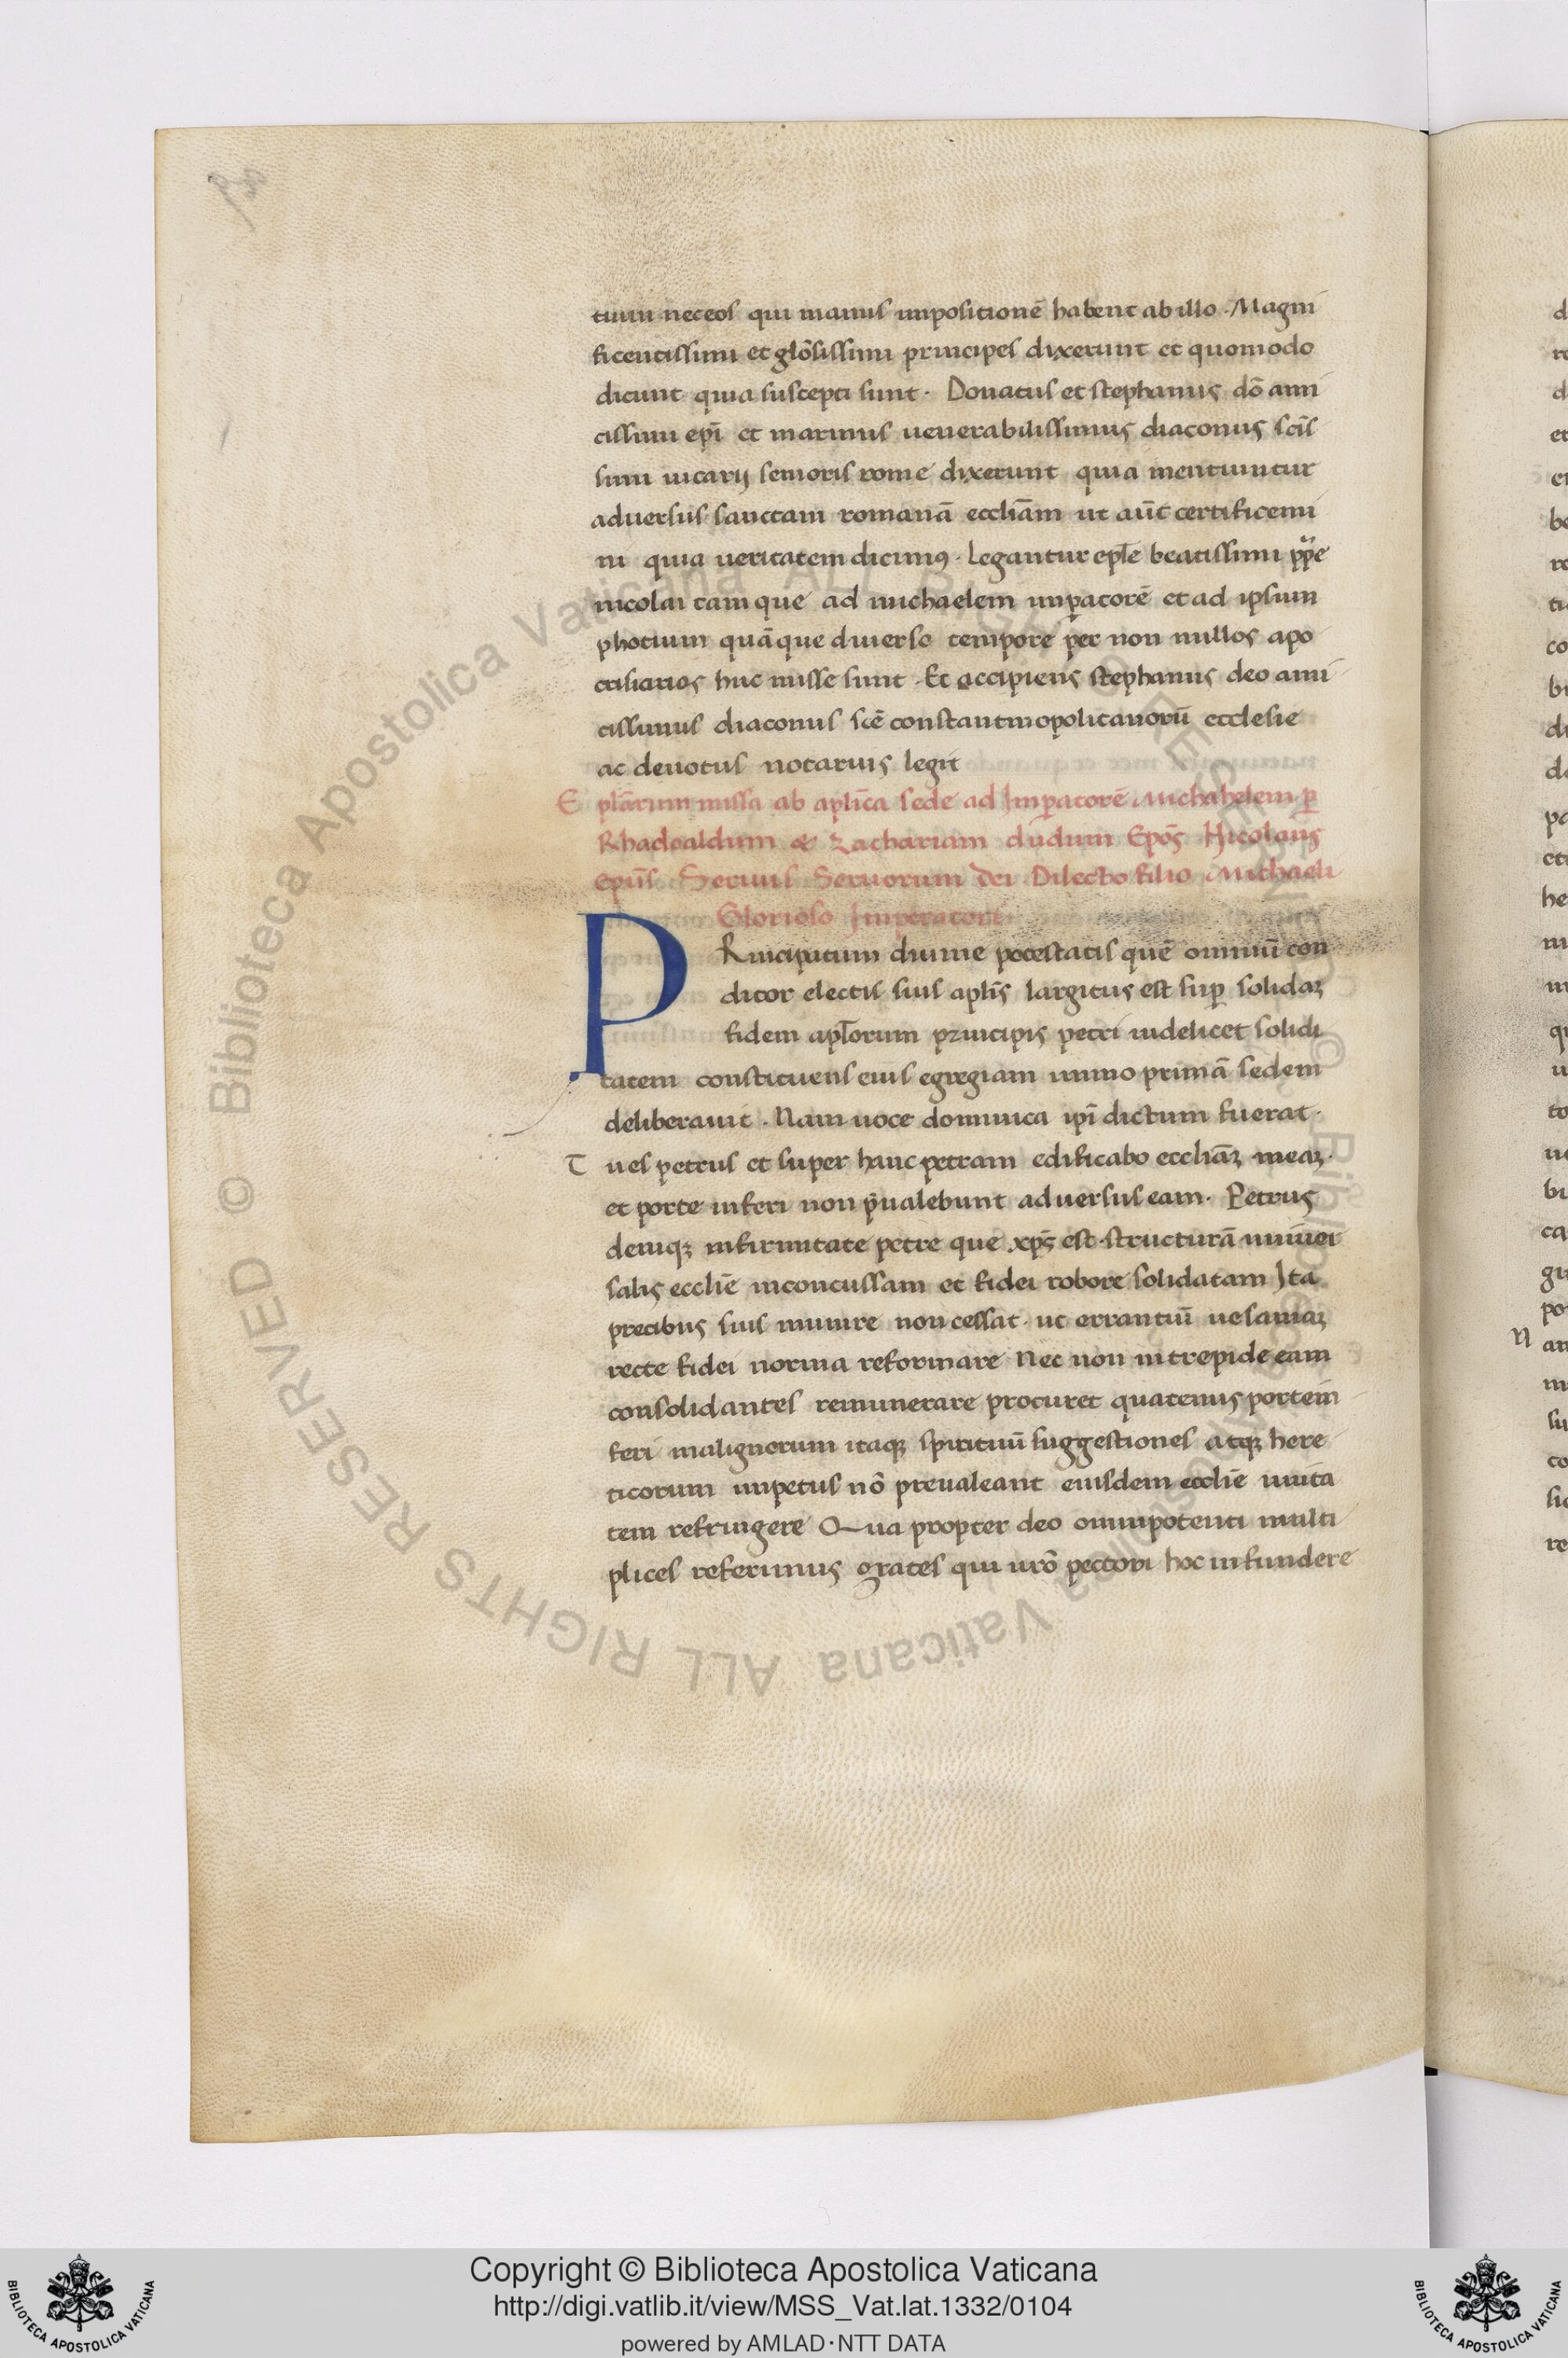 tium nec eos qui manus impositionē habent ab illo. Magni
ficentissimi et glōsissimi principes dixerunt et quomodo
dicunt quia suscepti sunt. Donatus et stephanus dō ami
cissimi epī et marinus venerabilissimus diaconus scīs
simi vicarij senioris rome dixerunt quia mentiuntur
adversus sanctam romanā eccliām ut aūt certificemi
ni quia veritatem dicimꝰ. Legantur eplē beatissimi pp̄e
nicolai tam que ad michaelem imꝑatorē et ad ipsum
photium quāque diverso tempore per non nullos apo
crisiarios huc misse sunt. Et accipiens stephanus deo ami
cissimus diaconus scē constantinopolitanorū ecclesie
ac devotus notarius legit
E plārum missa ab aplīca sede ad Imꝑatorē Michahelem ꝑ
Rhadoaldum & Zachariam dudum Epōs Nicolaus
epūs Servus Servorum dei Dilecto filio Michaeli
Glorioso Imperatori
PRincipatum divine potestatis quē omniū con
ditor electis suis aplīs largitus est suꝑ solidaꝫ
fidem aplōrum principis petri videlicet solidi
tatem constituens eius egregiam immo primā sedem
deliberavit. Nam voce dominica ipī dictum fuerat.
T ues petrus et super hanc petram edificabo eccliāꝫ meaꝫ.
et porte inferi non p̄valebunt adversus eam. Petrus
deniqꝫ infirmitate petre que xp̄s est structurā univer
salis ecclīe inconcussam et fidei robore solidatam Ita
precibus suis munire non cessat. ut errantiū vesaniaꝫ
recte fidei norma reformare Nec non intrepide eam
consolidantes remunerare procuret quatenus porte in
feri malignorum itaqꝫ spirituū suggestiones atqꝫ here
ticorum impetus nō prevaleant eiusdem ecclīe unita
tem refringere Qua propter deo omnipotenti multi
plices referimus grates qui vrō pectori hoc infundere
Copyright © Biblioteca Apostolica Vaticana
http://digi.vatlib.it/view/MSS_Vat.lat.1332/0104
powered by AMLAD·NTT DATA